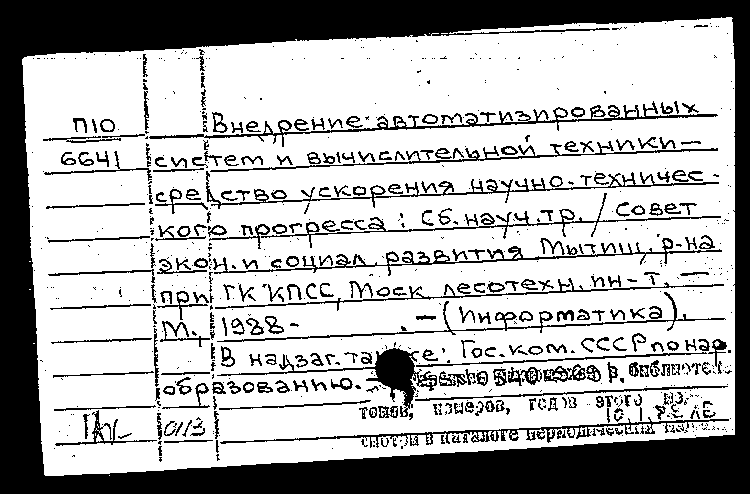 П10 Внедрение автоматизированных
6641 систем и вычислительной техники —
средство ускорения научно-техничес-
кого прогресса : Сб. науч. тр. / Совет
экон. и социал. развития Мытищ. р-на
при ГК КПСС, Моск. лесотехн. ин-т. —
М., 1988 - . — (Информатика).
В надзаг. также: Гос. ком. СССР по нар.
образованию. —
библиотек
томов, номеров, годов этого из-
0113
смотри в каталоге периодических